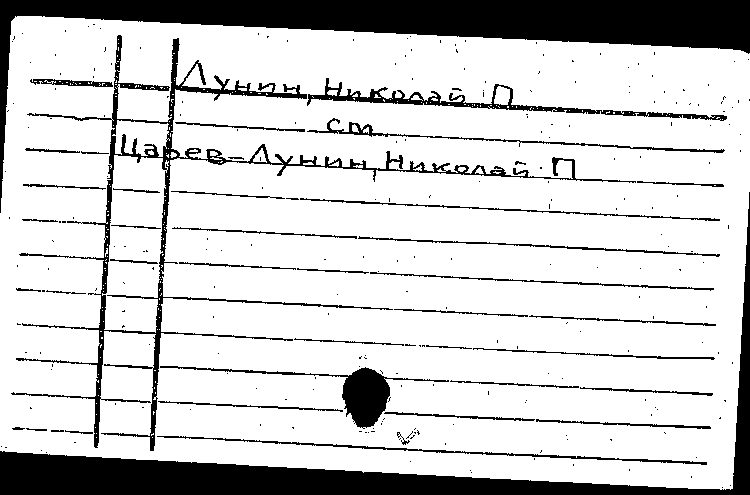 Лунин, Николай П
см
Царев-Лунин, Николай П